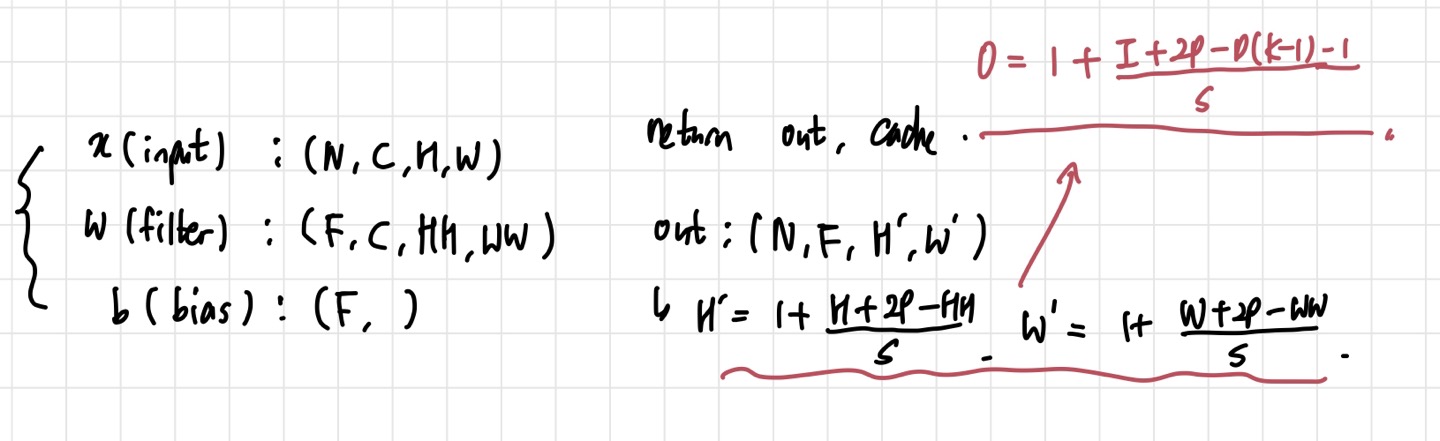 O = 1 + (I+2P-D(K-1)-1)/S
x (input) : (N, C, H, W)
return out, cache.
W (filter) : (F, C, HH, WW)
out : (N, F, H', W')
b (bias) : (F, )
↳ H' = 1 + (H+2P-HH)/S . W' = 1 + (W+2P-WW)/S .